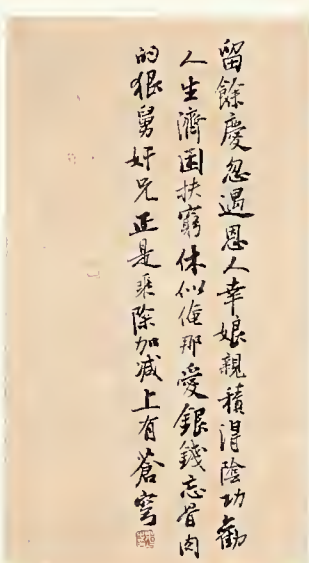 留餘慶忽遇恩人幸娘親積得陰功勸
人生濟困扶窮休似俺那愛銀錢忘骨肉
的狠舅奸兄正是乘除加減上有蒼穹